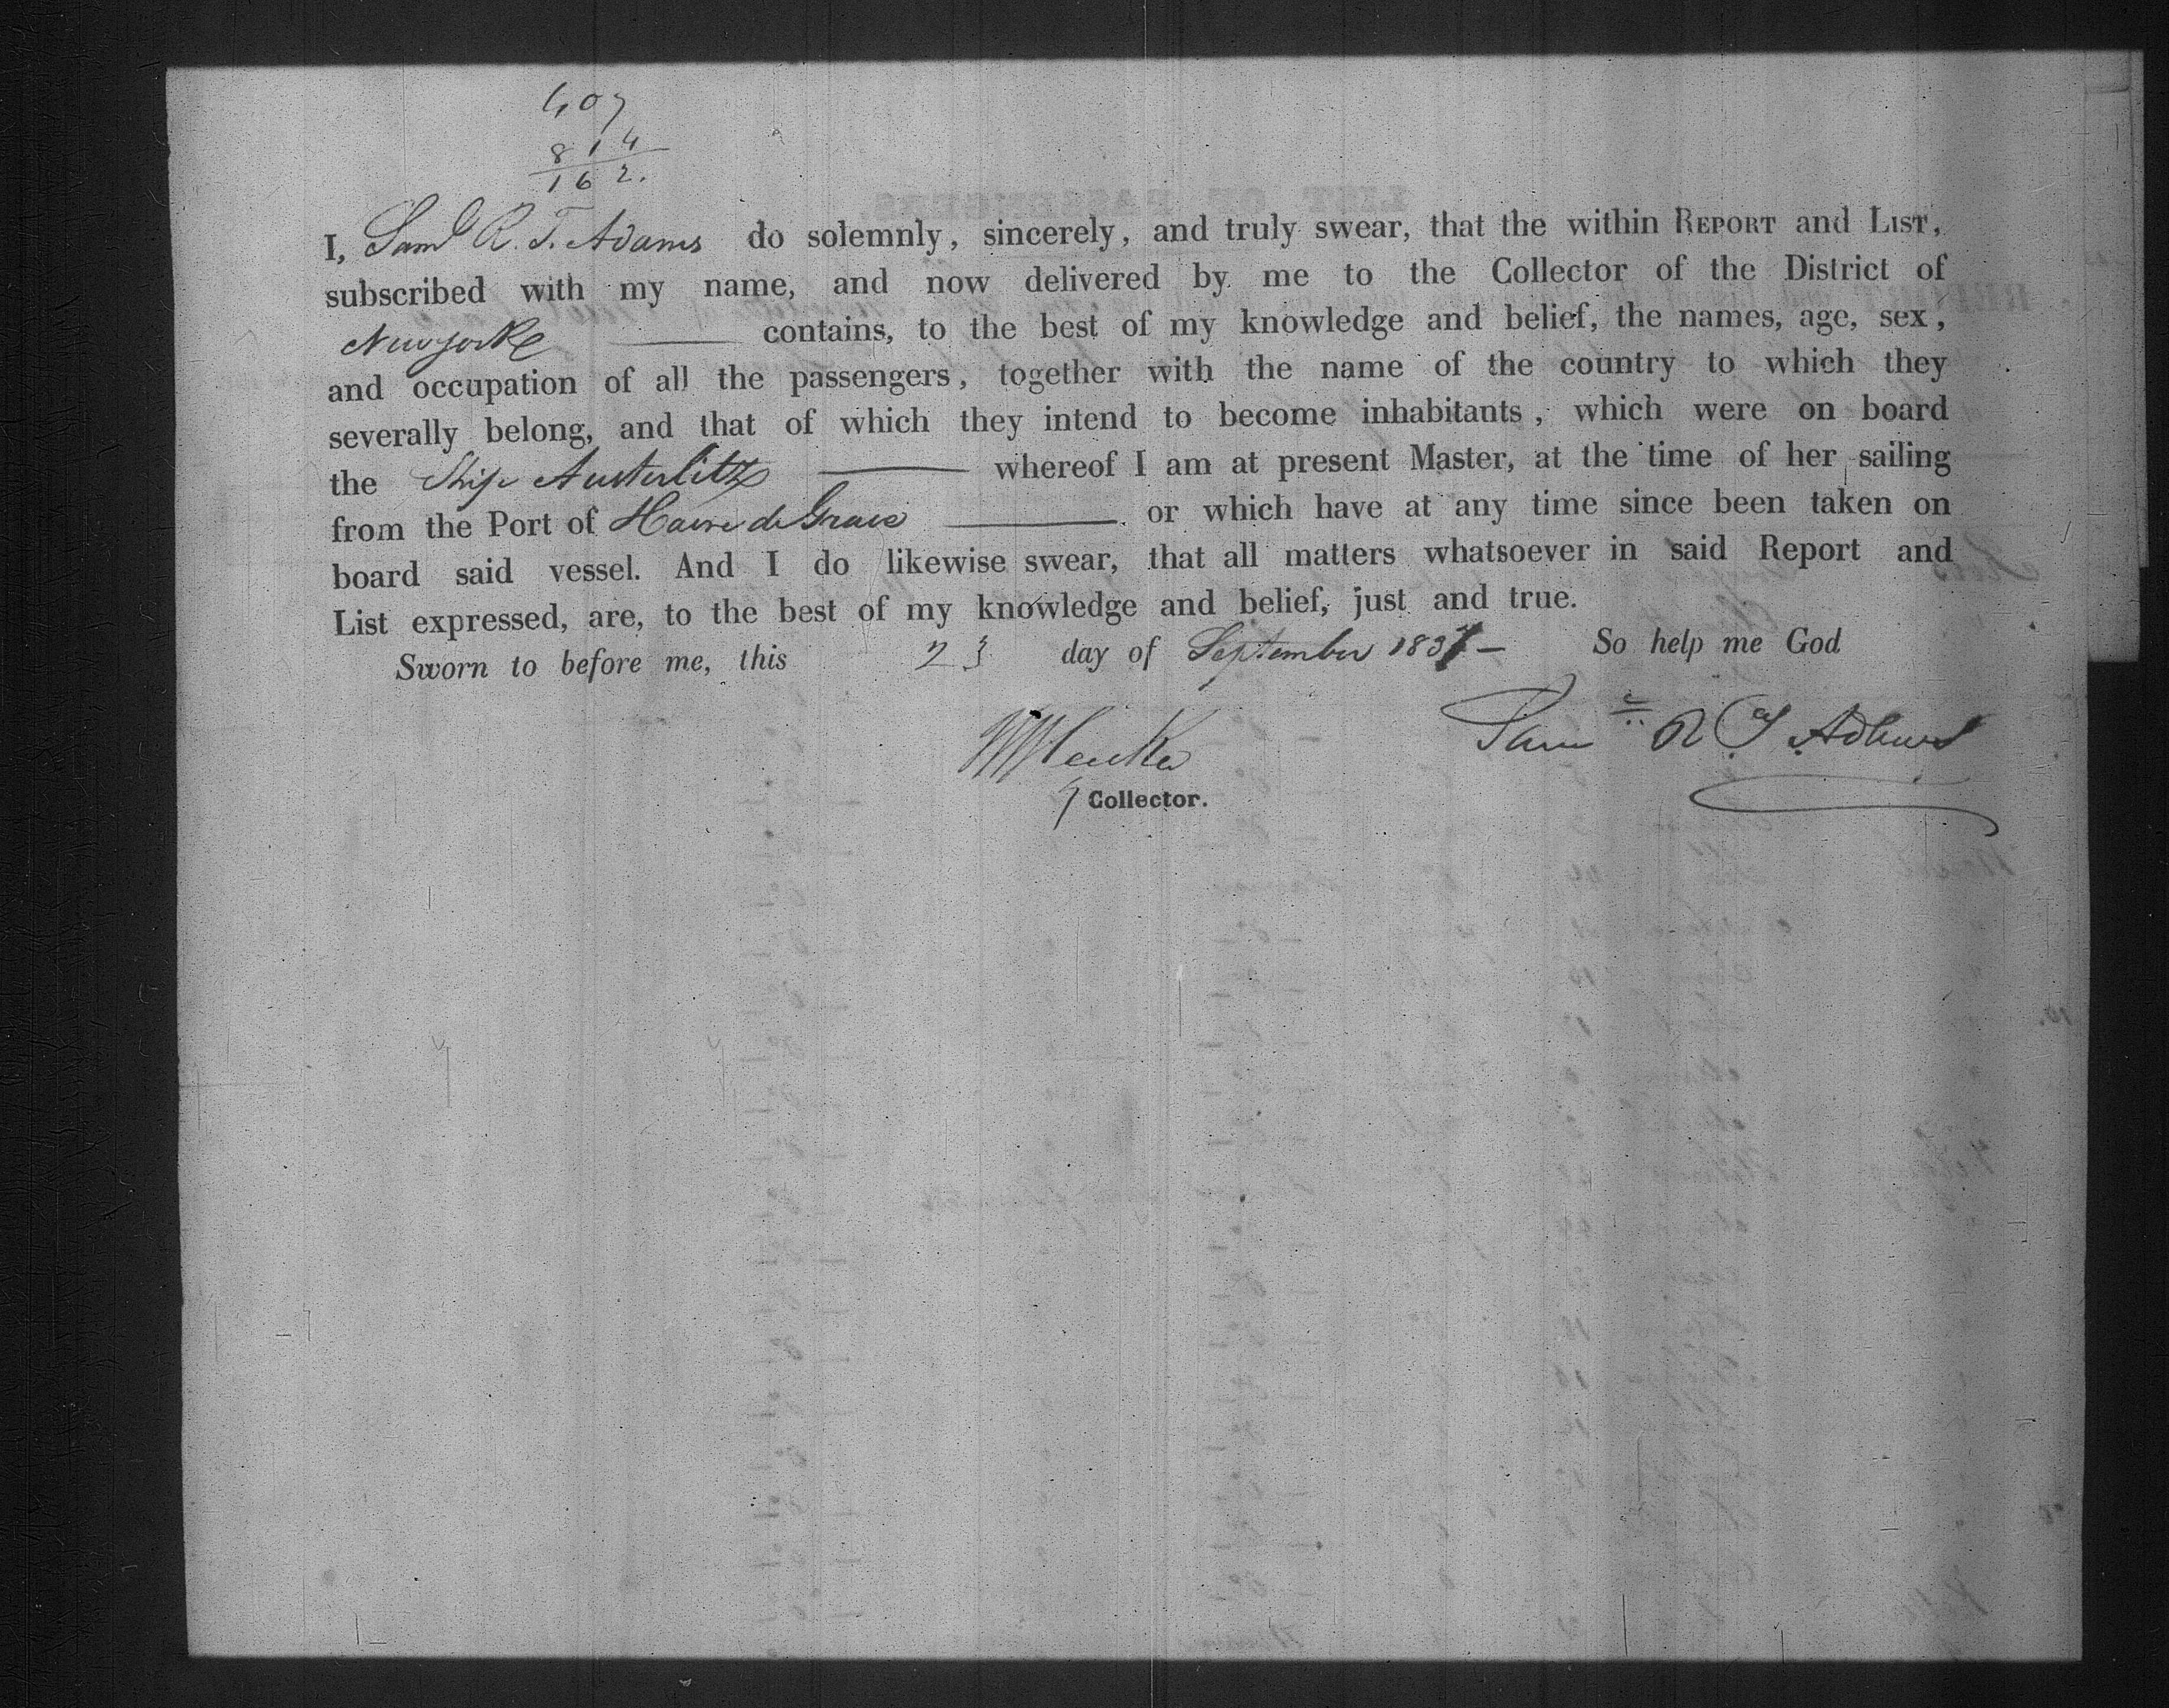 407
814
162.
I, Saml R. T. Adams do solemnly, sincerely, and truly swear, that the within REPORT and LIST,
subscribed with my name, and now delivered by me to the Collector of the District of
Newyork contains, to the best of my knowledge and belief, the names, age, sex,
and occupation of all the passengers, together with the name of the country to which they
severally belong, and that of which they intend to become inhabitants, which were on board
the Ship Austerlitz whereof I am at present Master, at the time of her sailing
from the Port of Havre de Grace or which have at any time since been taken on
board said vessel. And I do likewise swear, that all matters whatsoever in said Report and
List expressed, are, to the best of my knowledge and belief, just and true.
Sworn to before me, this 23 day of September 183 So help me God
Sam R T Adams
Collector.